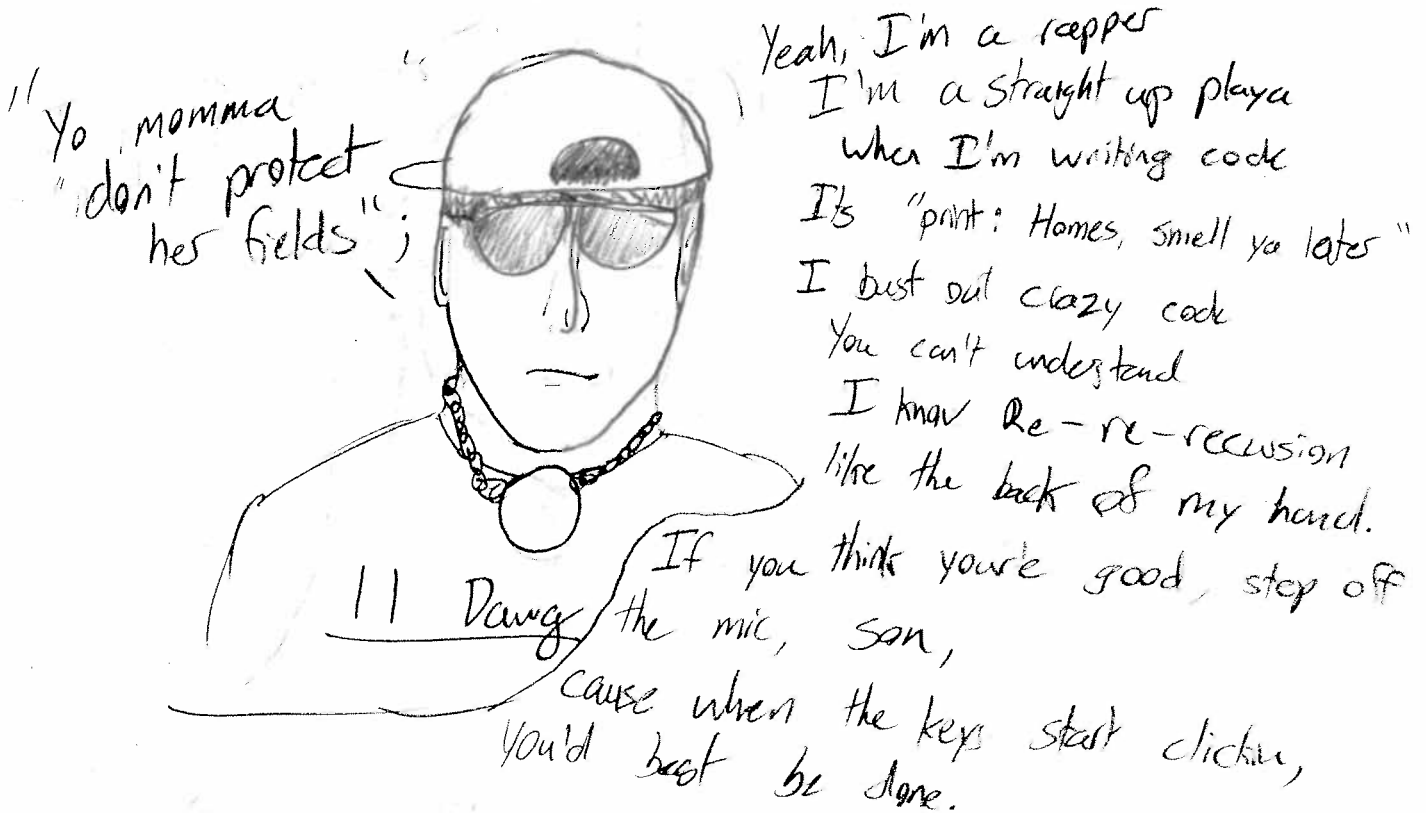 "Yo momma
don't protect
her fields";
11 Dawg
Yeah, I'm a rapper
I'm a straight up playa
when I'm writing code
It's "print: Homes, smell ya later"
I bust out crazy code
You can't understand
I know Re-re-recursion
like the back of my hand.
If you think you're good, step off
the mic, son,
cause when the keys start clickin,
you'd best be done.